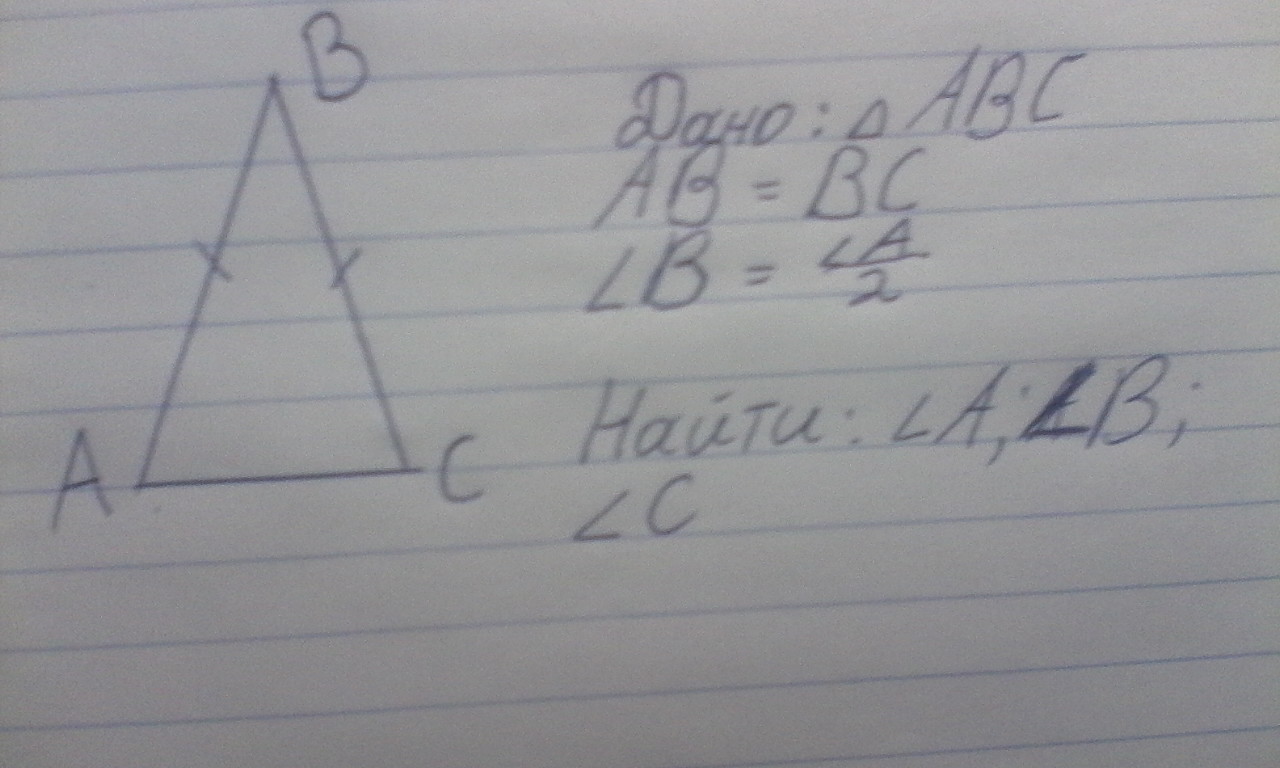 B
Дано: △ ABC
AB = BC
∠B = ∠A/2
Найти: ∠A; ∠B;
A
C
∠C